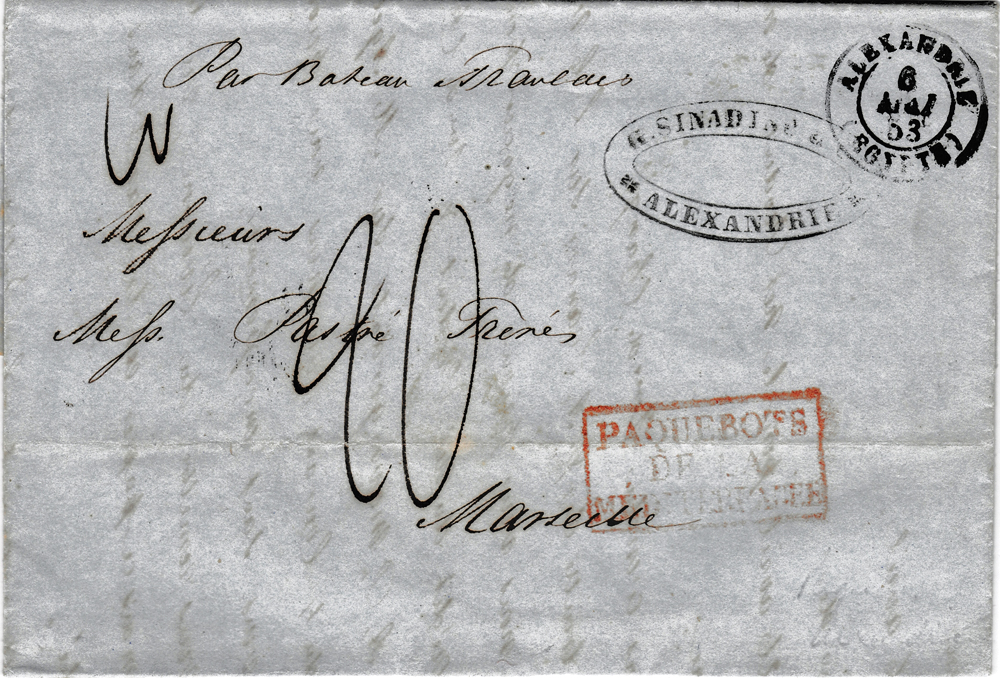 Par Bateau Francais
ALEXANDRIE
6
MAI
53
(EGYPTE)
G. SINADINO &
ALEXANDRIE
Messieurs
Mess. Pastré Frères
20
PAQUEBOTS
DE LA
MÉDITERRANÉE
Marseille